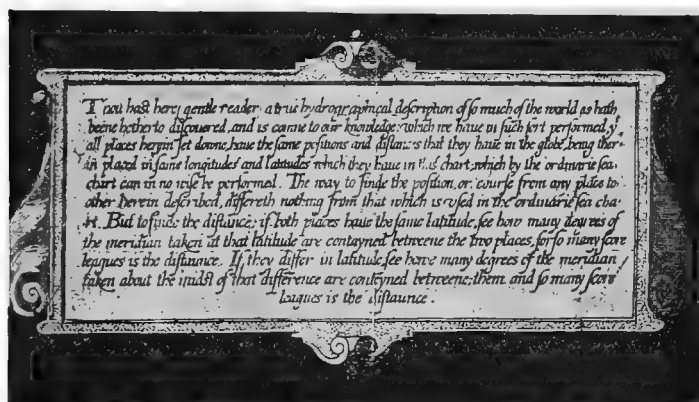 Thou hast here, gentle reader, a true hydrographicall description of so much of the world as hath
beene hetherto discouered, and is comne to our knowledge: which we have in such sort performed, yt
all places herein set downe, haue the same positions and distances that they haue in the globe, being ther-
in placed in same longitudes and latitudes which they haue in this chart, which by the ordinarie sea
chart can in no wise be performed. The way to finde the position, or course from any place to
other herein described, differeth nothing from that which is vsed in the ordinarie sea cha-
rt. But to finde the distance; if both places haue the same latitude, see how many degrees of
the meridian taken at that latitude are contayned betweene the two places, for so many score
leagues is the distaunce. If they differ in latitude, see howe many degrees of the meridian
taken about the midst of that difference are conteyned betweene them and so many score
leagues is the distaunce.